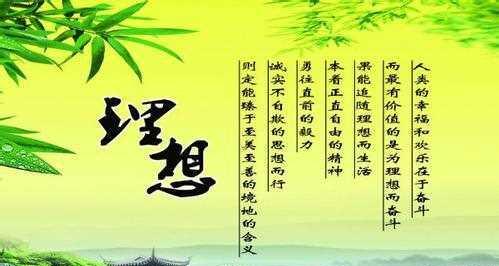 理想
人类的幸福和欢乐在于奋斗
而最有价值的是为理想而奋斗
果能追随理想而生活
本着正直自由的精神
勇往直前的毅力
诚实不自欺的思想而行
则定能臻于至美至善的境地的含义